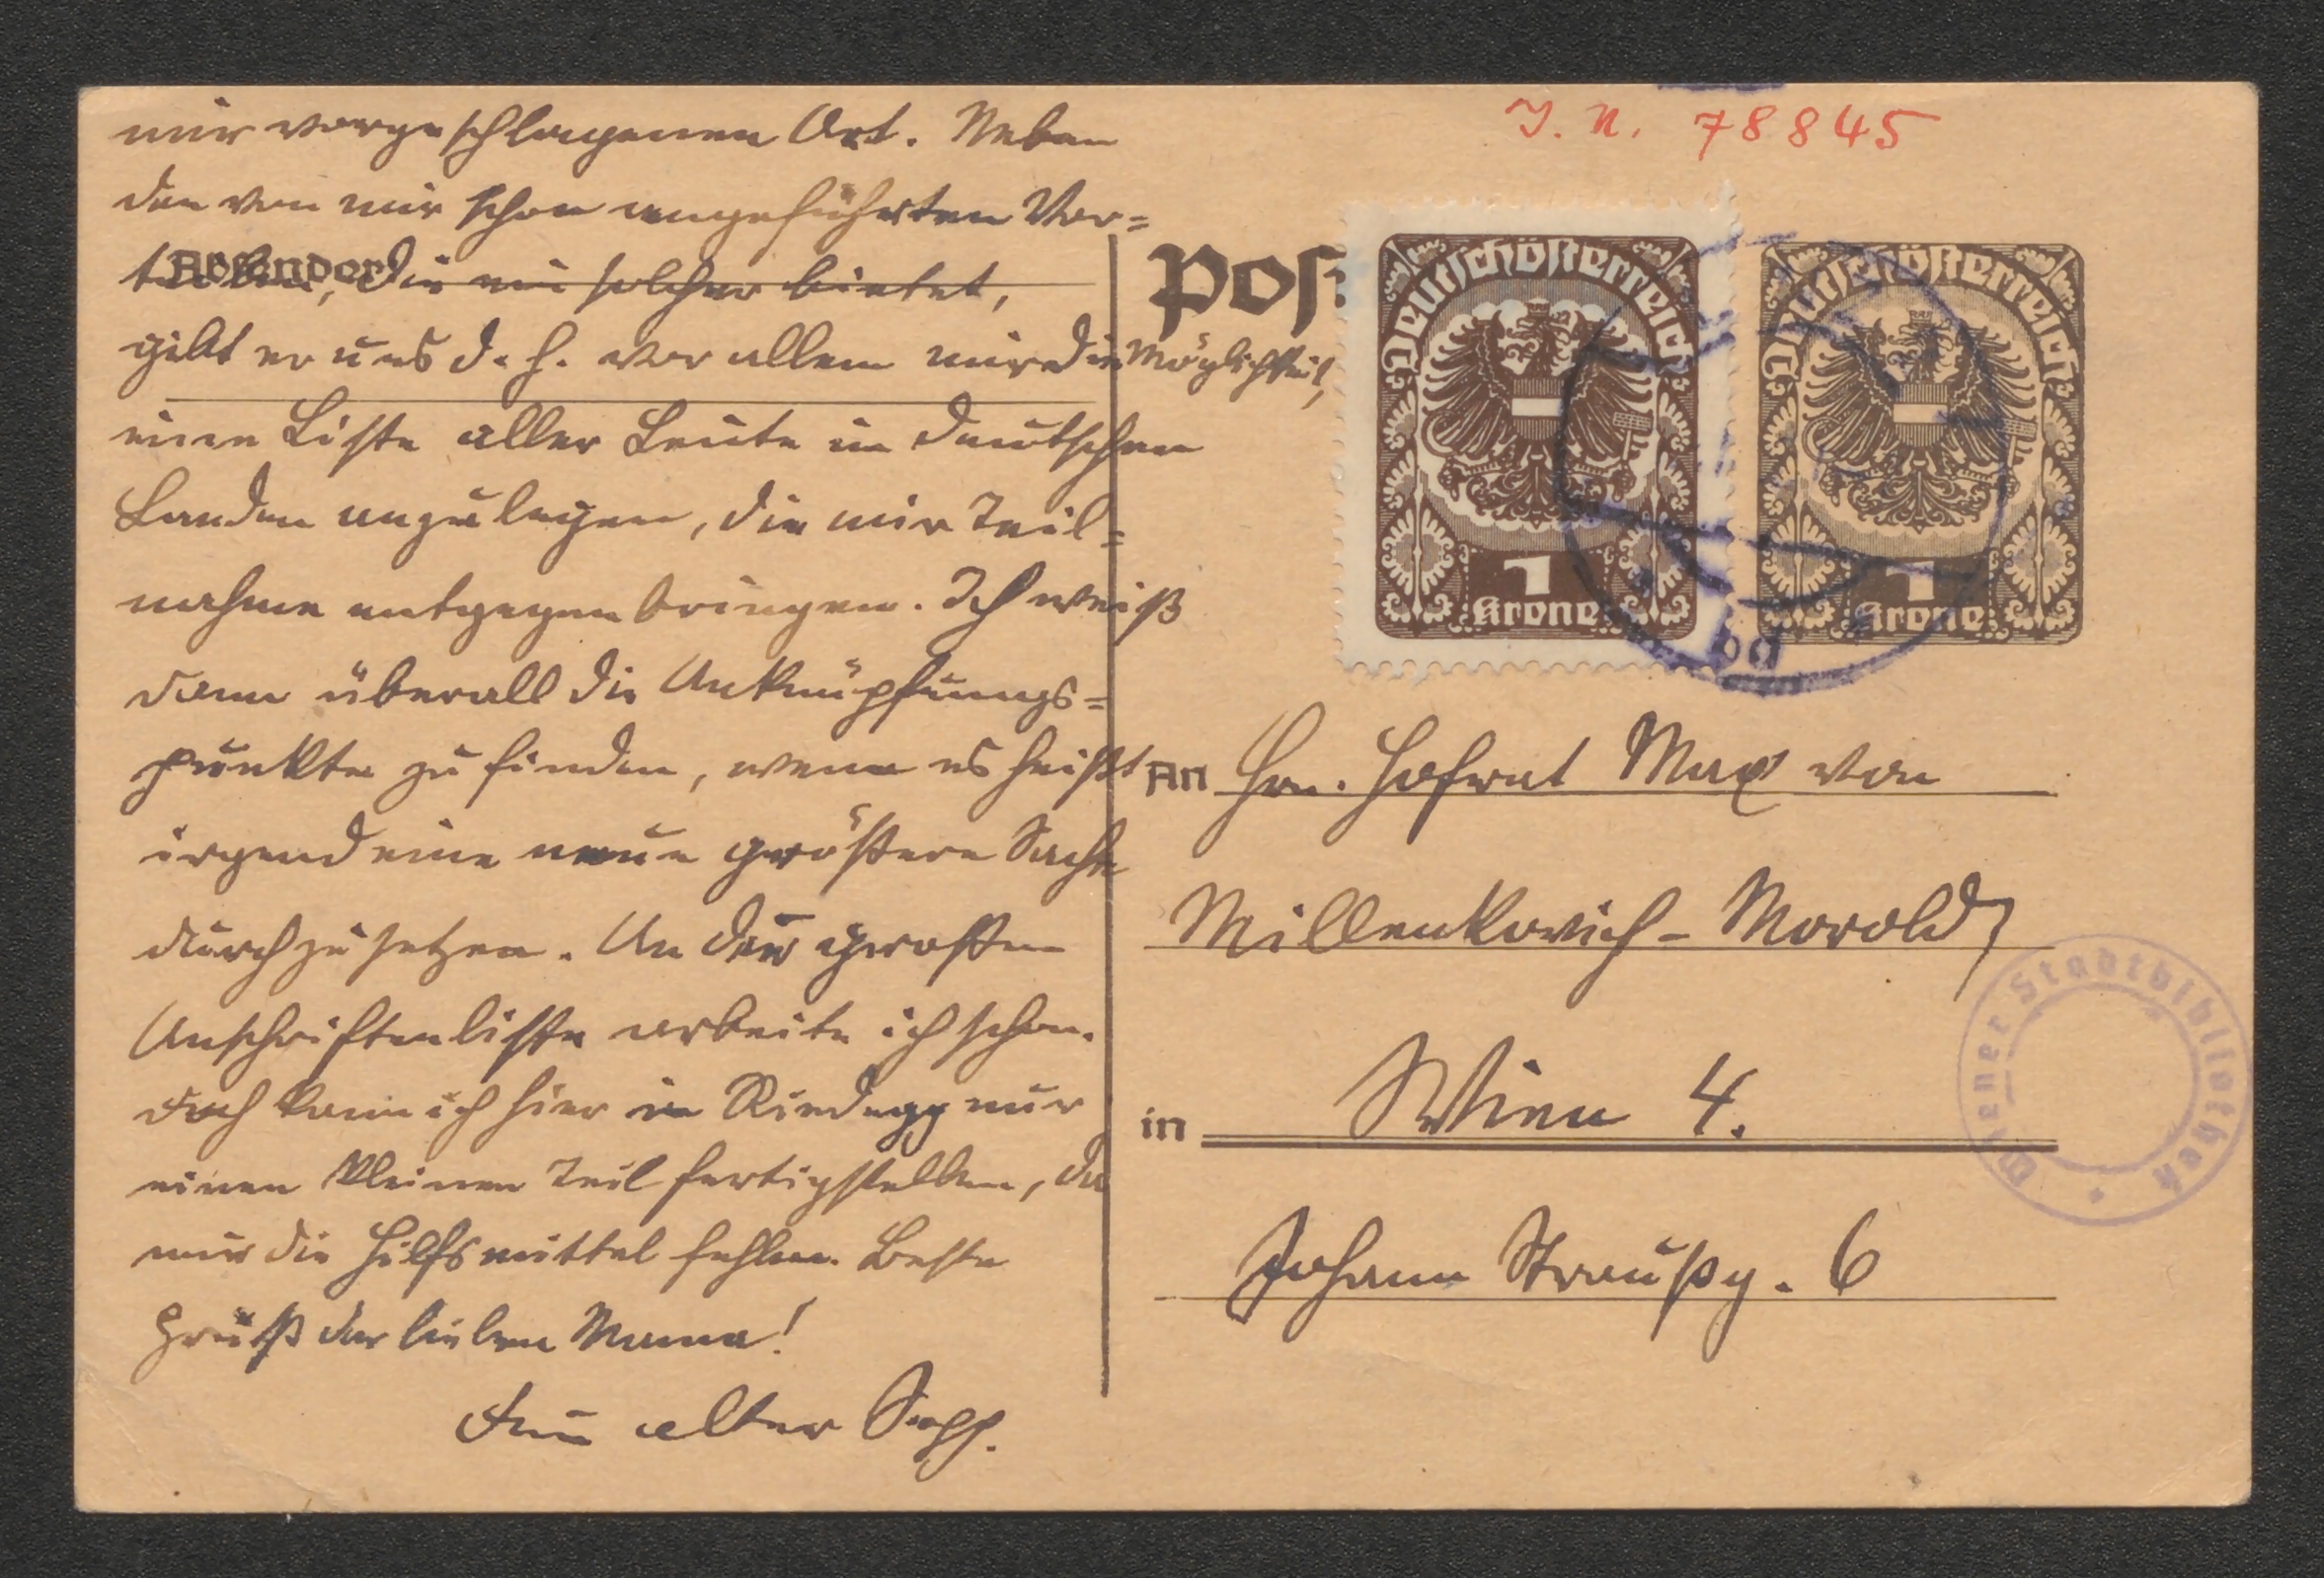 mir vorgeschlagenen Art. Neben
den von mir schon angeführten Vor=
teilen, die ein solcher bietet,
gibt er uns d. h. vor allem mir die Möglichkeit,
eine Liste aller Leute in deutschen
Landen anzulegen, die mir Teil=
nahme entgegenbringen. Ich weiß
dann überall die Anknüpfungs=
punkte zu finden, wenn es heißt
irgend eine neue größere Sache
durchzusetzen. An der großen
Anschriftenliste arbeite ich schon.
Doch kann ich hier in Riedegg nur
einen kleinen Teil fertigstellen, da
mir die Hilfsmittel fehlen. Beste
Grüße der lieben Mama!
Dein alter Sepp.
Absender
J. N. 78845
Post
Deutschösterreich
1
Krone
Deutschösterreich
1
Krone
An Hrn. Hofrat Max von
Millenkovich-Morold
in Wien 4.
Johann Straußg. 6
Wiener Stadtbibliothek